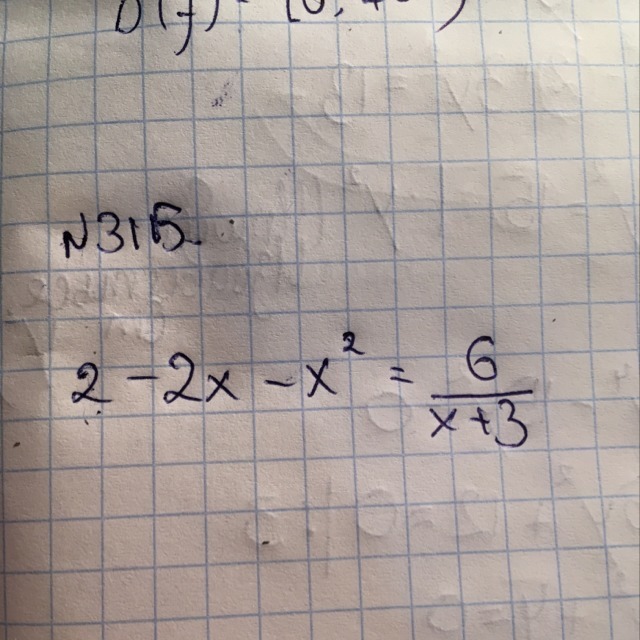 N315
2 - 2x - x² = 6/(x+3)